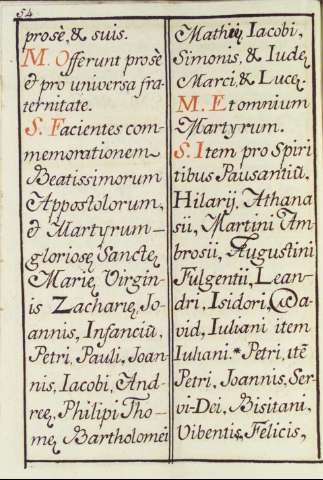 54
prosè, & suis.
M. Offerunt prosè
& pro universa fra-
ternitate.
S. Facientes com-
memorationem
Beatissimorum
Appostolorum,
& Martyrum
gloriosę Sanctę
Marię Virgin-
is Zacharię, Jo-
annis, Infanciū,
Petri, Pauli, Joan-
nis, Iacobi, And-
reę, Philipi Tho-
mę, Bartholomei
Mathęi, Iacobi,
Simonis, & Iudę
Marci, & Lucę.
M. Et omnium
Martyrum.
S. Item pro Spiri
tibus Pausantiū.
Hilarij, Athana
sii, Martini Am
brosii, Augustini
Fulgentii, Lean-
dri, Isidori, Da-
vid, Iuliani item
Iuliani.* Petri, itē
Petri, Joannis, Ser-
vi-Dei, Bisitani,
Vibentis, Felicis,